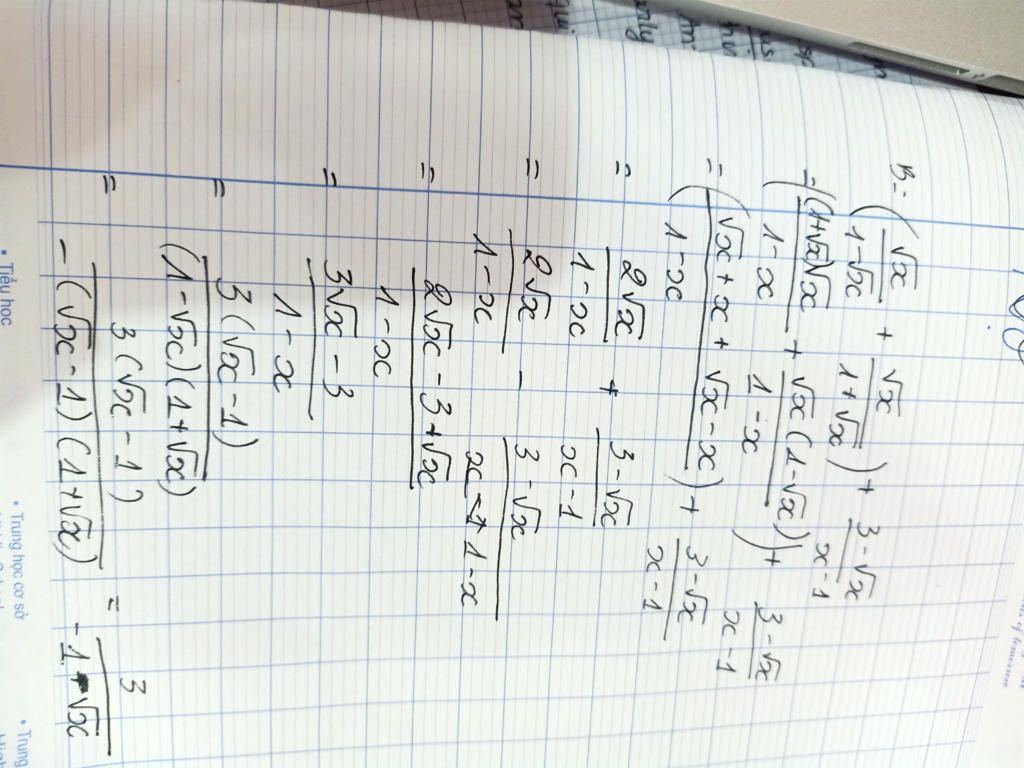 B = (√x/(1-√x) + √x/(1+√x)) + (3-√x)/(x-1)
= ((1+√x)√x/(1-x) + √x(1-√x)/(1-x)) + (3-√x)/(x-1)
= ((√x + x + √x - x)/(1-x)) + (3-√x)/(x-1)
= 2√x/(1-x) + (3-√x)/(x-1)
= 2√x/(1-x) - (3-√x)/(1-x)
= (2√x - 3 + √x)/(1-x)
= (3√x - 3)/(1-x)
= 3(√x - 1)/((1-√x)(1+√x))
= 3(√x - 1)/(-(√x - 1)(1+√x)) = 3/(-1-√x)
• Tiểu học
• Trung học cơ sở
• Trung